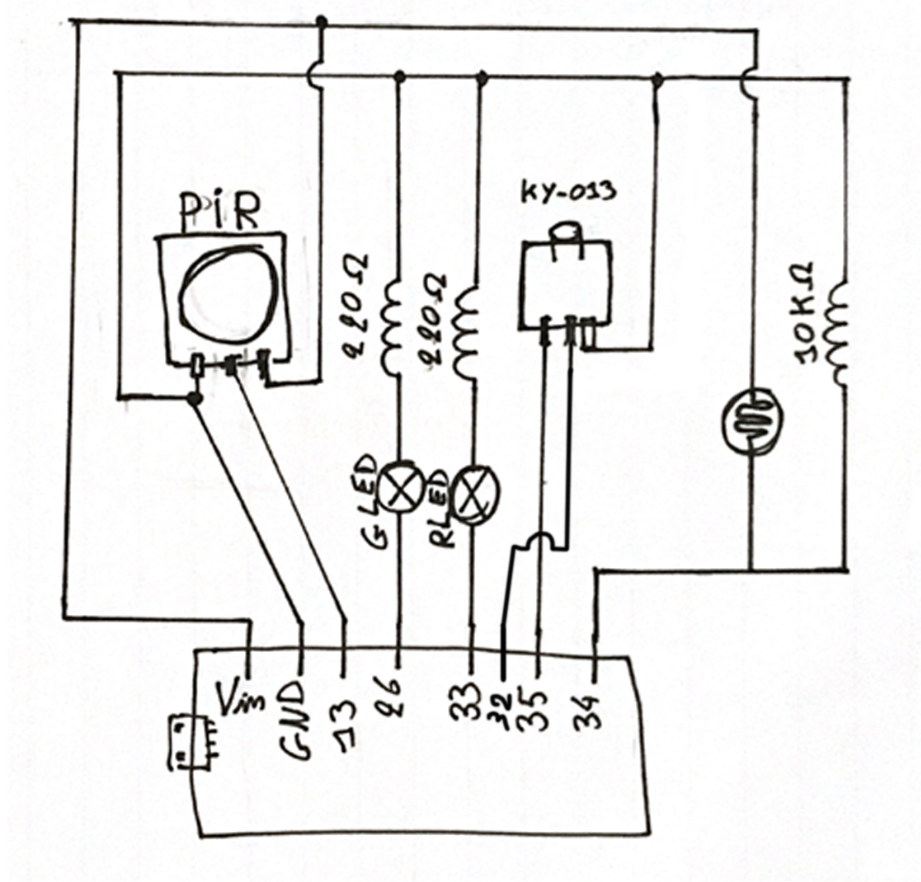 PiR
KY-013
220Ω
220Ω
10KΩ
G LED
R LED
Vin
GND
13
26
33
32
35
34